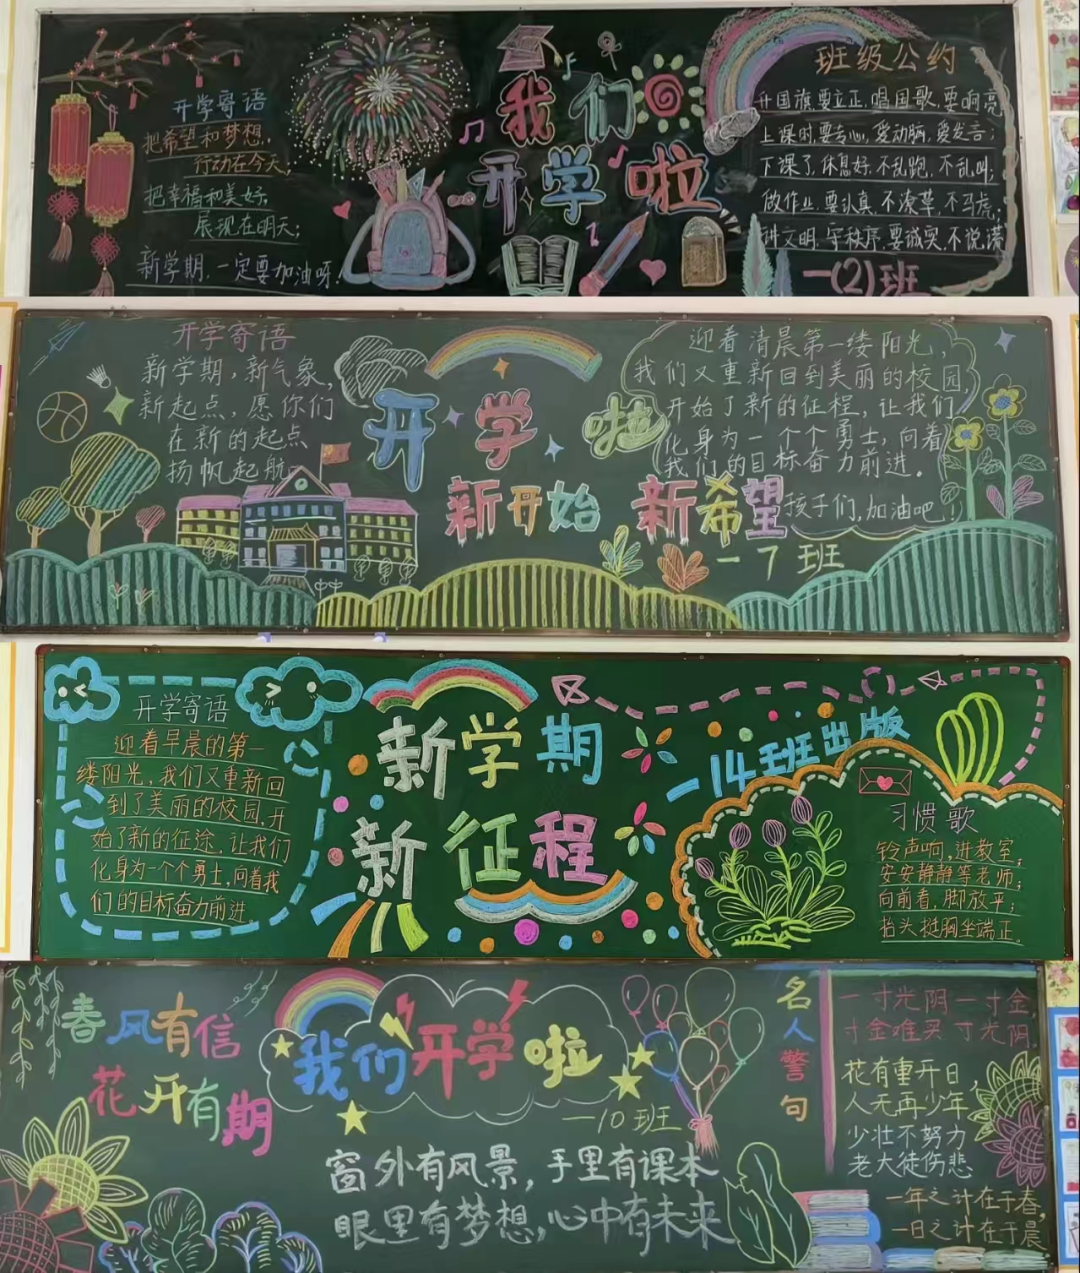 开学寄语
把希望和梦想,
行动在今天,
把幸福和美好,
展现在明天;
新学期,一定要加油呀!
我们
开学啦
班级公约
升国旗要立正,唱国歌,要响亮
上课时要专心,爱动脑,爱发言;
下课了,休息好,不乱跑,不乱叫;
做作业,要认真,不潦草,不马虎;
讲文明,守秩序,要诚实,不说谎
一(2)班
开学寄语
新学期,新气象,
新起点,愿你们
在新的起点
扬帆起航
开学啦
新开始 新希望
一7班
迎着清晨第一缕阳光,
我们又重新回到美丽的校园
开始了新的征程,让我们
化身为一个个勇士,向着
我们的目标奋力前进。
孩子们,加油吧!
开学寄语
迎着早晨的第一
缕阳光,我们又重新回
到了美丽的校园,开
始了新的征途,让我们
化身为一个个勇士,向着我
们的目标奋力前进。
新学期
新征程
一14班出版
习惯歌
铃声响,进教室,
安安静静等老师;
向前看,脚放平;
抬头挺胸坐端正。
春风有信
花开有期
我们开学啦
一10班
窗外有风景,手里有课本
眼里有梦想,心中有未来
名人警句
一寸光阴一寸金
寸金难买寸光阴
花有重开日,
人无再少年
少壮不努力
老大徒伤悲
一年之计在于春,
一日之计在于晨